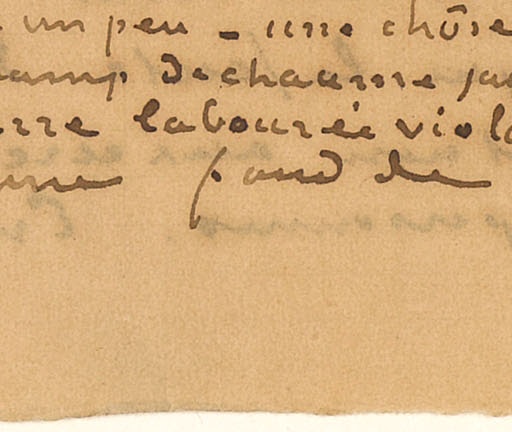 un peu – une chôse
amp de chaume jau
rre labourée viol
une fond de